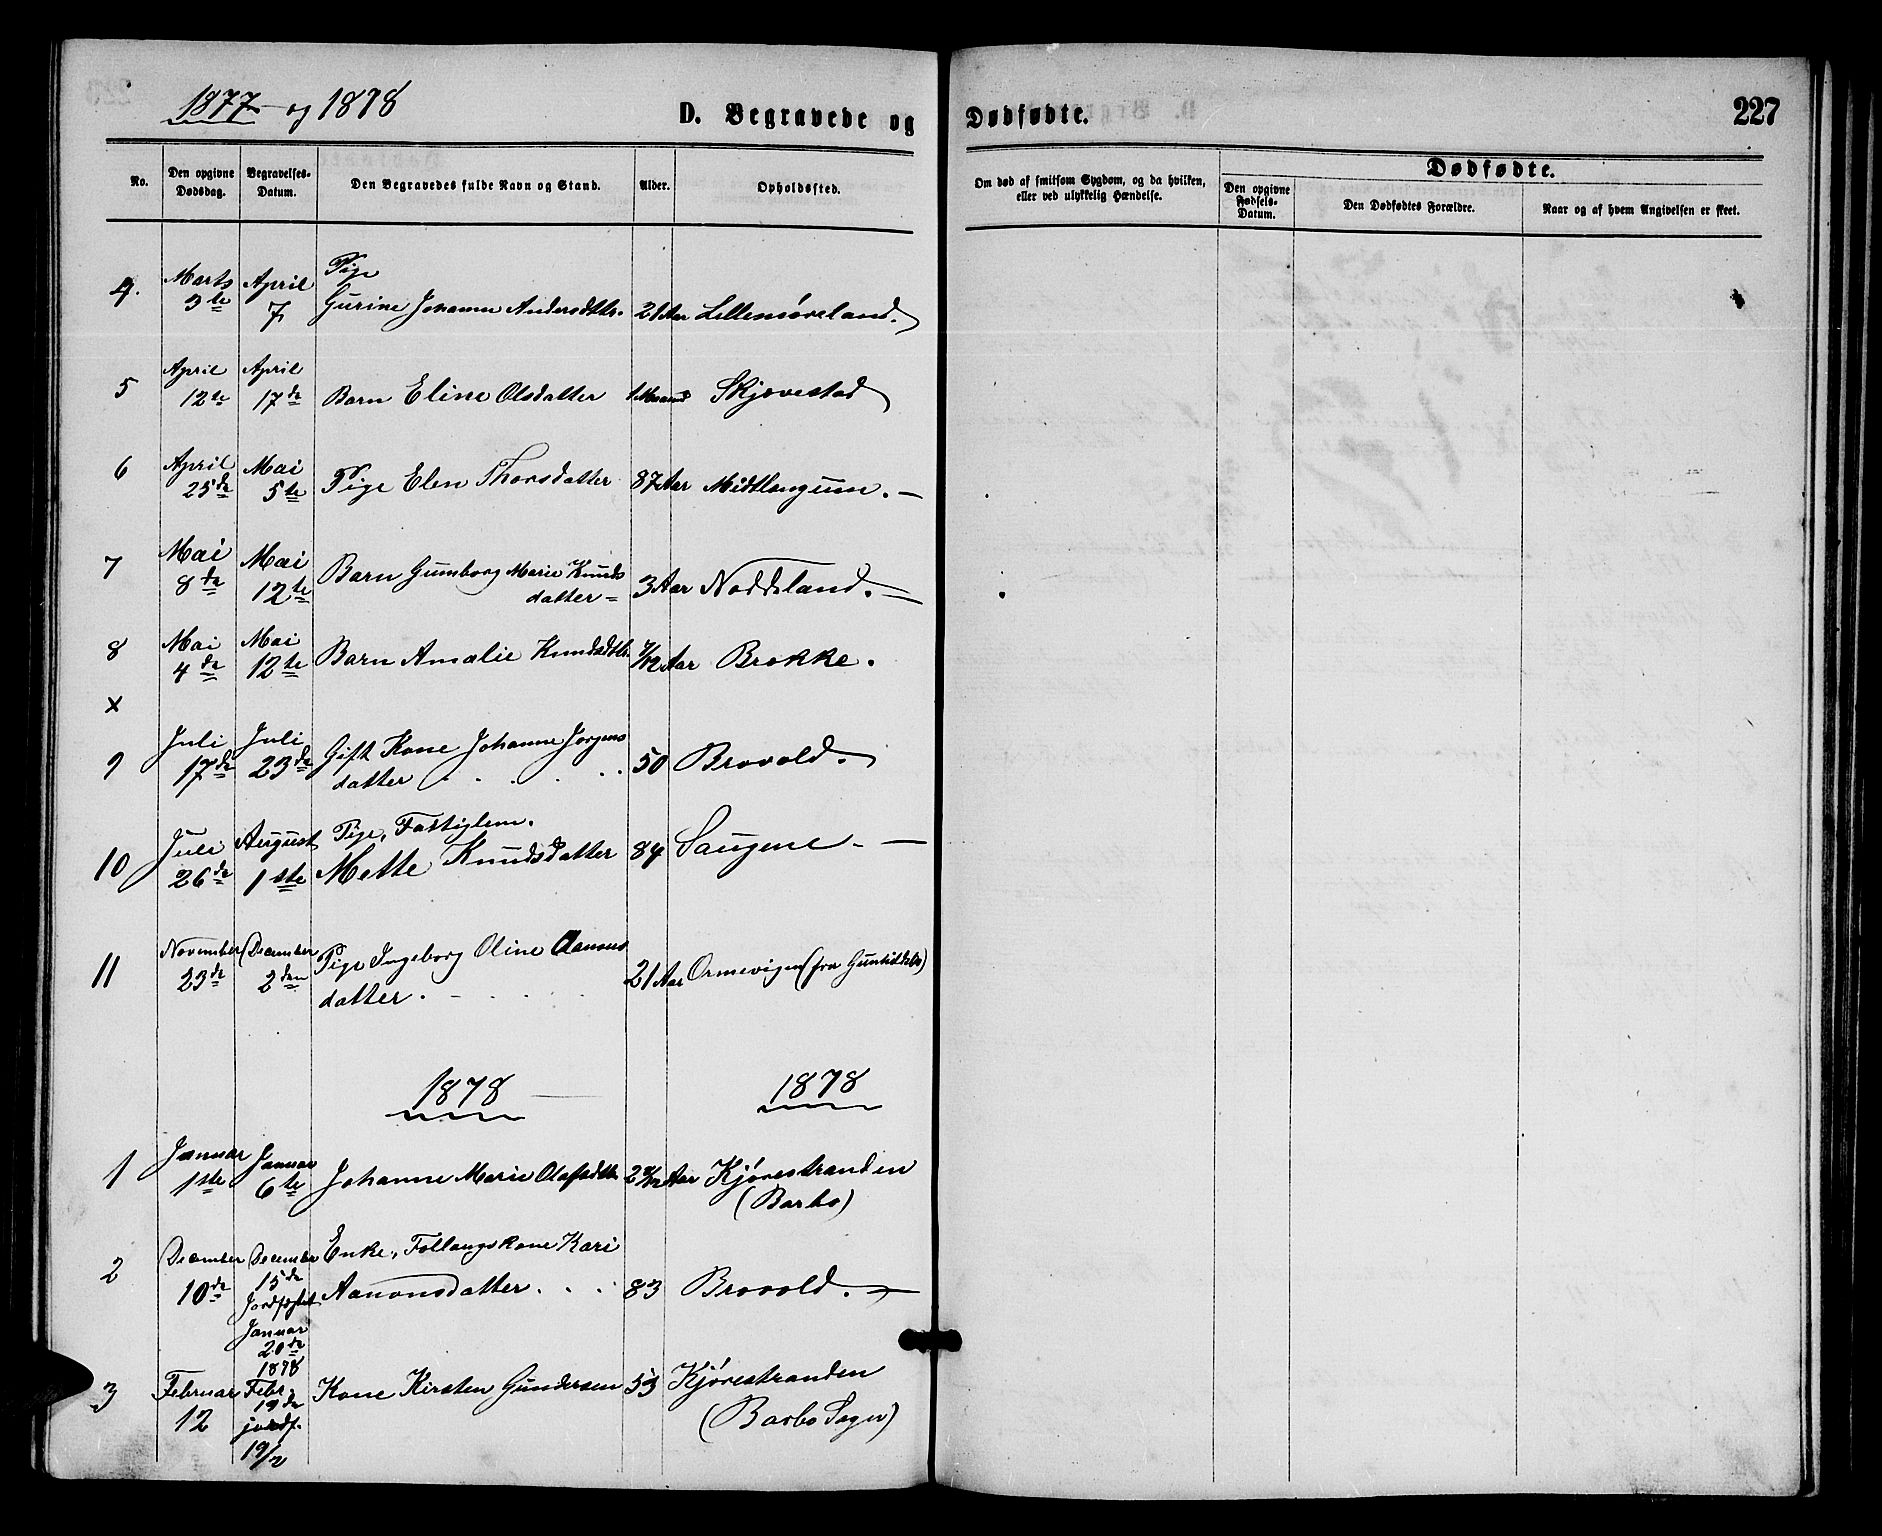 1877 og 1878
D. Begravede og Dødfødte.
227
No.
Den opgivne Dødsdag.
Begravelses-Datum.
Den Begravedes fulde Navn og Stand.
Alder.
Opholdssted.
Om død af smitsom Sygdom, og da hvilken, eller ved ulykkelig Hændelse.
Dødfødte.
Den opgivne Fødsels-Datum.
Den Dødfødtes Forældre.
Naar og af hvem Angivelsen er skeet.
4. Marts 9te April 7 Pige Gurine Johanne Andersdttr. 21 Aar Lillemøreland.
5 April 12te April 17de Barn Eline Olsdatter 1 Maaned Skjævestad
6 April 25de Mai 5te Pige Elen Thorsdatter 87 Aar Midtlangum. —
7 Mai 8de Mai 12te Barn Gumborg Marie Knuds datter = 3 Aar Noddeland. —
8 Mai 4de Mai 12te Barn Amalie Knudsdttr. 7/12 Aar Brokke.
x
9 Juli 17de Juli 23de Gift Kone Johanne Jørgens datter . . . . 50 Brovold.
10 Juli 26de August 1ste Pige, Fattiglem. Mette Knudsdatter 84 Saugene. —
11 November 23de December 2den Pige Ingeborg Oline Aanons datter. - . . . 21 Aar Ormevigen (fra
1878 1878
1 Januar 1ste Januar 6te Johanne Marie Olafsdttr. Aar Kjørestranden
(Barbo)
2 December 10de December 15de Jordfæstet Januar 20de 1878 Enke, Føllaugskone Kari
Aanonsdatter. . . 83 Brovold. —
3 Februar 12 Febr. 19de jordf. 19/2 Kone Kirsten Gundersen 53 Kjørestranden
(Barbo Sogn)